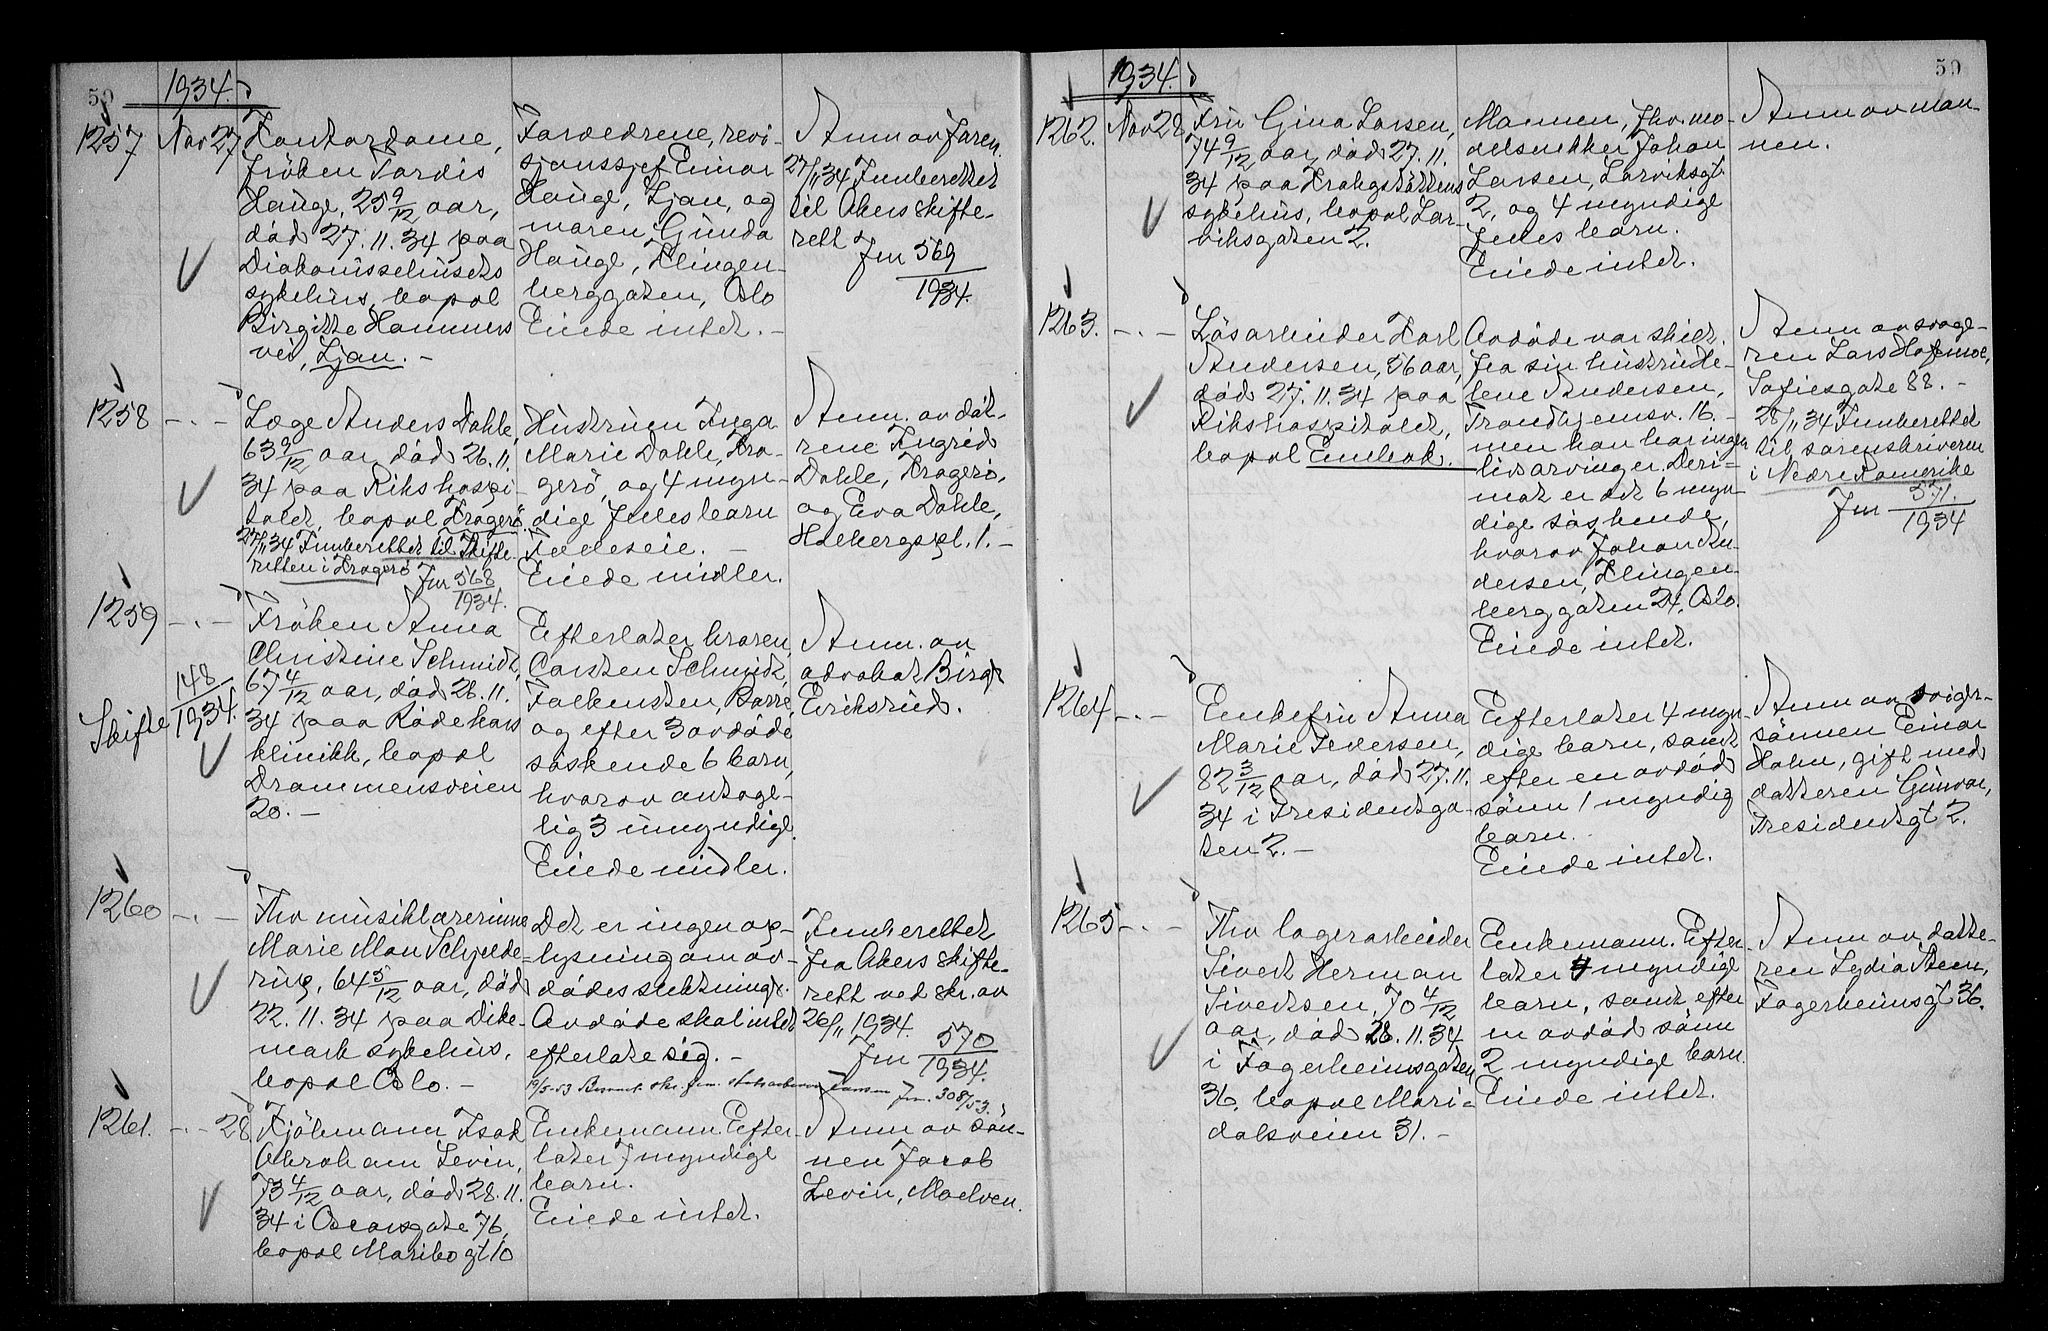 59
1934.
1257
Nov 27
Kontordame,
fröken Tordis
Hauge, 25 9/12 aar,
död 27.11.34 paa
Diakonissehusets
sykehus, bopæl
Birgitte Hammers
vei, Ljan. -
Forældrene, revi-
sjonssjef Einar
Hauge, Ljan, og
moren Gunda
Hauge, Klingen-
berggaten, Oslo
Eiede intet. -
Anm av faren.
27/11 34 Innberettet
til Akers skifte-
rett Jnr 569/1934.
1258
- . -
Læge Anders Dahle,
63 9/12 aar, död 26.11.
34 paa Rikshospi-
talet, bopæl Kragerö.
27/11 34 Innberettet til Skifte-
retten i Kragerö Jnr 568/1934.
Hustruen Inga
Marie Dahle, Kra-
gerö, og 4 myn-
dige fælles barn
Fælleseie. -
Eiede midler.
Anm. av döt-
rene Ingrid
Dahle, Kragerö,
og Eva Dahle,
Holbergspl. 1. -
1259
- . -
Skifte 148/1934.
Fröken Anna
Christine Schmidt,
67 4/12 aar, död 26.11.
34 paa Röde kors
klinikk, bopæl
Drammensveien
20. -
Efterlater broren
Carsten Schmidt,
Falkensten, Borre,
og efter 3 avdöde
söskende 6 barn,
hvorav antage-
lig 3 umyndige.
Eiede midler.
Anm. av
advokat Birg.
Eriksrud.
1260
- . -
Fhv musiklærerinne
Marie Mon Schjelde-
rup, 64 5/12 aar, död
22.11.34 paa Dike-
mark sykehus,
bopæl Oslo. -
Det er ingen op-
lysning om av-
dödes slektninge.
Avdöde skal intet
efterlate sig. -
Innberettet
fra Akers skifte-
rett ved skr. av
26/11 1934.
Jnr 570/1934.
19/5-53 Jnr. 308/53.
1261.
- . - 28
Kjöbmann Isak
Abraham Levin,
73 4/12 aar, död 28.11.
34 i Oscarsgate 76,
bopæl Maribogt 10
Enkemann. Efter-
later 7 myndige
barn.
Eiede intet.
Anm av sön-
nen Jacob
Levin, Moelven.
59
1934.
1262.
Nov 28
Fru Gina Larsen,
74 9/12 aar, död 27.11.
34 paa Krohgstöttens
sykehus, bopæl Lar-
viksgaten 2.
Mannen, fhv. mo-
delsnekker Johan
Larsen, Larviksgt
2, og 4 myndige
fælles barn.
Eiede intet.
Anm av man-
nen.
1263.
- . -
Lösarbeider Karl
Andersen, 56 aar,
död 27.11.34 paa
Rikshospitalet,
bopæl Enebak.
Avdöde var skilt
fra sin hustru He-
lene Andersen,
Trondhjemsv. 16. -
men han har ingen
livsarvinger. Deri-
mot er det 6 myn-
dige söskende,
hvorav Johan An-
dersen, Klingen-
berggaten 24, Oslo.
Eiede intet.
Anm av svoge-
ren Lars Hofsmoe,
Sofiesgate 88. -
28/11 34 Innberettet
til sorenskriveren
i Nedre Romerike
Jnr 571/1934
1264
- . -
Enkefru Anna
Marie Pedersen,
82 3/12 aar, död 27.11.
34 i Presidentga-
ten 2. -
Efterlater 4 myn-
dige barn, samt
efter en avdöd
sönn 1 myndig
barn.
Eiede intet.
Anm av sviger-
sönnen Einar
Holm, gift med
datteren Gunvor,
Presidentgt 2.
1265
- . -
Fhv lagerarbeider
Sivert Herman
Sivertsen, 70 4/12
aar, död 28.11.34
i Fagerheimsgaten
36, bopæl Mari-
dalsveien 31. -
Enkemann. Efter-
later 4 myndige
barn, samt efter
en avdöd sönn
2 myndige barn.
Eiede intet.
Anm av datte-
ren Lydia Steen,
Fagerheimsgt 36.